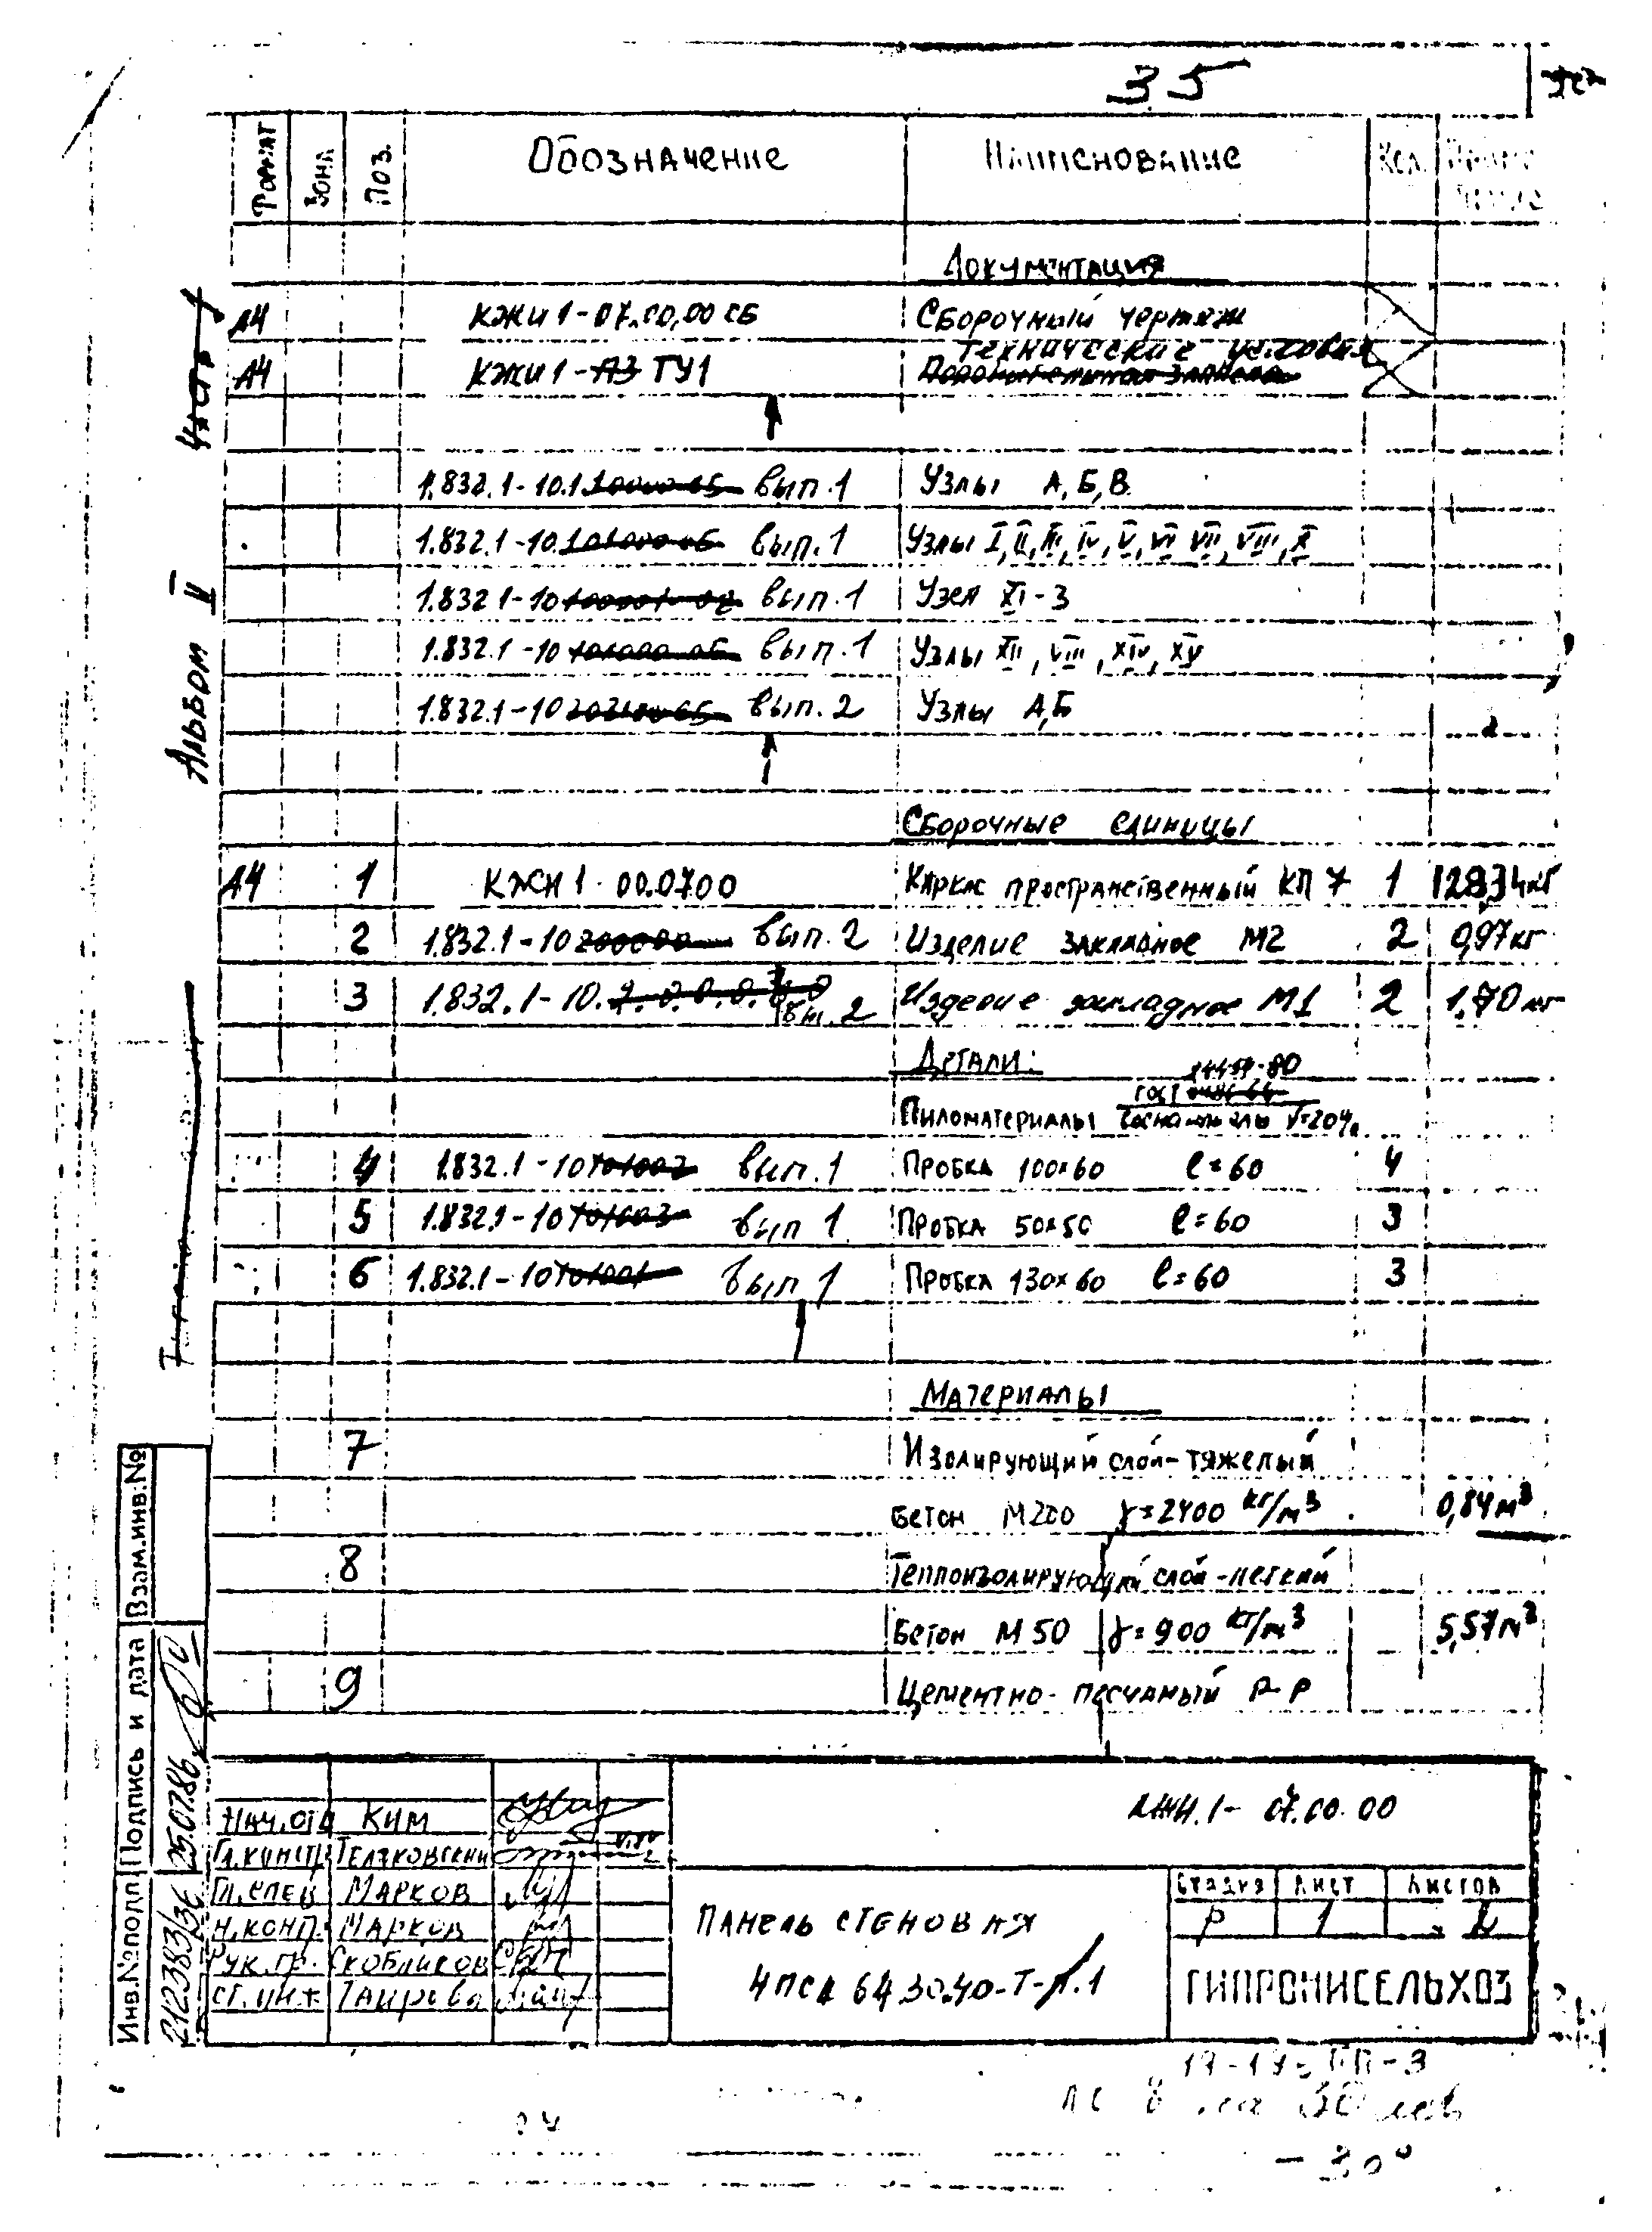 35
Формат Зона Поз. Обозначение Наименование Кол. Приме
чание
Документация
А4 КЖИ1-07.00.00 СБ Сборочный чертеж
Технические условия
А4 КЖИ1-А3 ТУ1
1.832.1-10.1 вып.1 Узлы А,Б,В
1.832.1-10 вып.1 Узлы I, II, III, IV, V, VI VII, VIII, X
1.832 1-10 вып.1 Узел XI-3
1.832.1-10 вып.1 Узлы XII, VIII, XIV, XV
1.832.1-10 вып.2 Узлы А,Б
Сборочные единицы
А4 1 КЖИ1-00.0700 Каркас пространственный КП 7 1 128,34кг
2 1.832.1-10 200000 вып.2 Изделие закладное М2 2 0,97кг
3 1.832.1-10. вып. 2 Изделие закладное М1 2 1,70кг
Детали:
-80
Пиломатериалы ГОСТ
4 1.832.1-10 вып.1 Пробка 100×60 ℓ=60 4
5 1.832.1-10 вып 1 Пробка 50×50 ℓ=60 3
6 1.832.1-10 вып 1 Пробка 130×60 ℓ=60 3
Материалы
7 Изолирующий слой-тяжелый
Бетон М200 γ=2400 кг/м3 0,84м3
8 Теплоизолирующий слой-легкий
Бетон М50 γ=900 кг/м3 5,57м3
9 Цементно-песчаный р-р
Альбом II
Взам.инв.№
Подпись и дата 25.07.86
Инв.№подл 212383/36
Нач.отд Ким
Гл.констр. Теляковский
Гл.спец Марков
Н.конт. Марков
Рук.гр. Скобликов
Ст.инж Таирова
КЖИ.1-07.00.00
Панель стеновая
4ПСЛ 64.30.40-Т-Л.1
Стадия Лист Листов
Р 1
ГИПРОНИСЕЛЬХОЗ
-30°